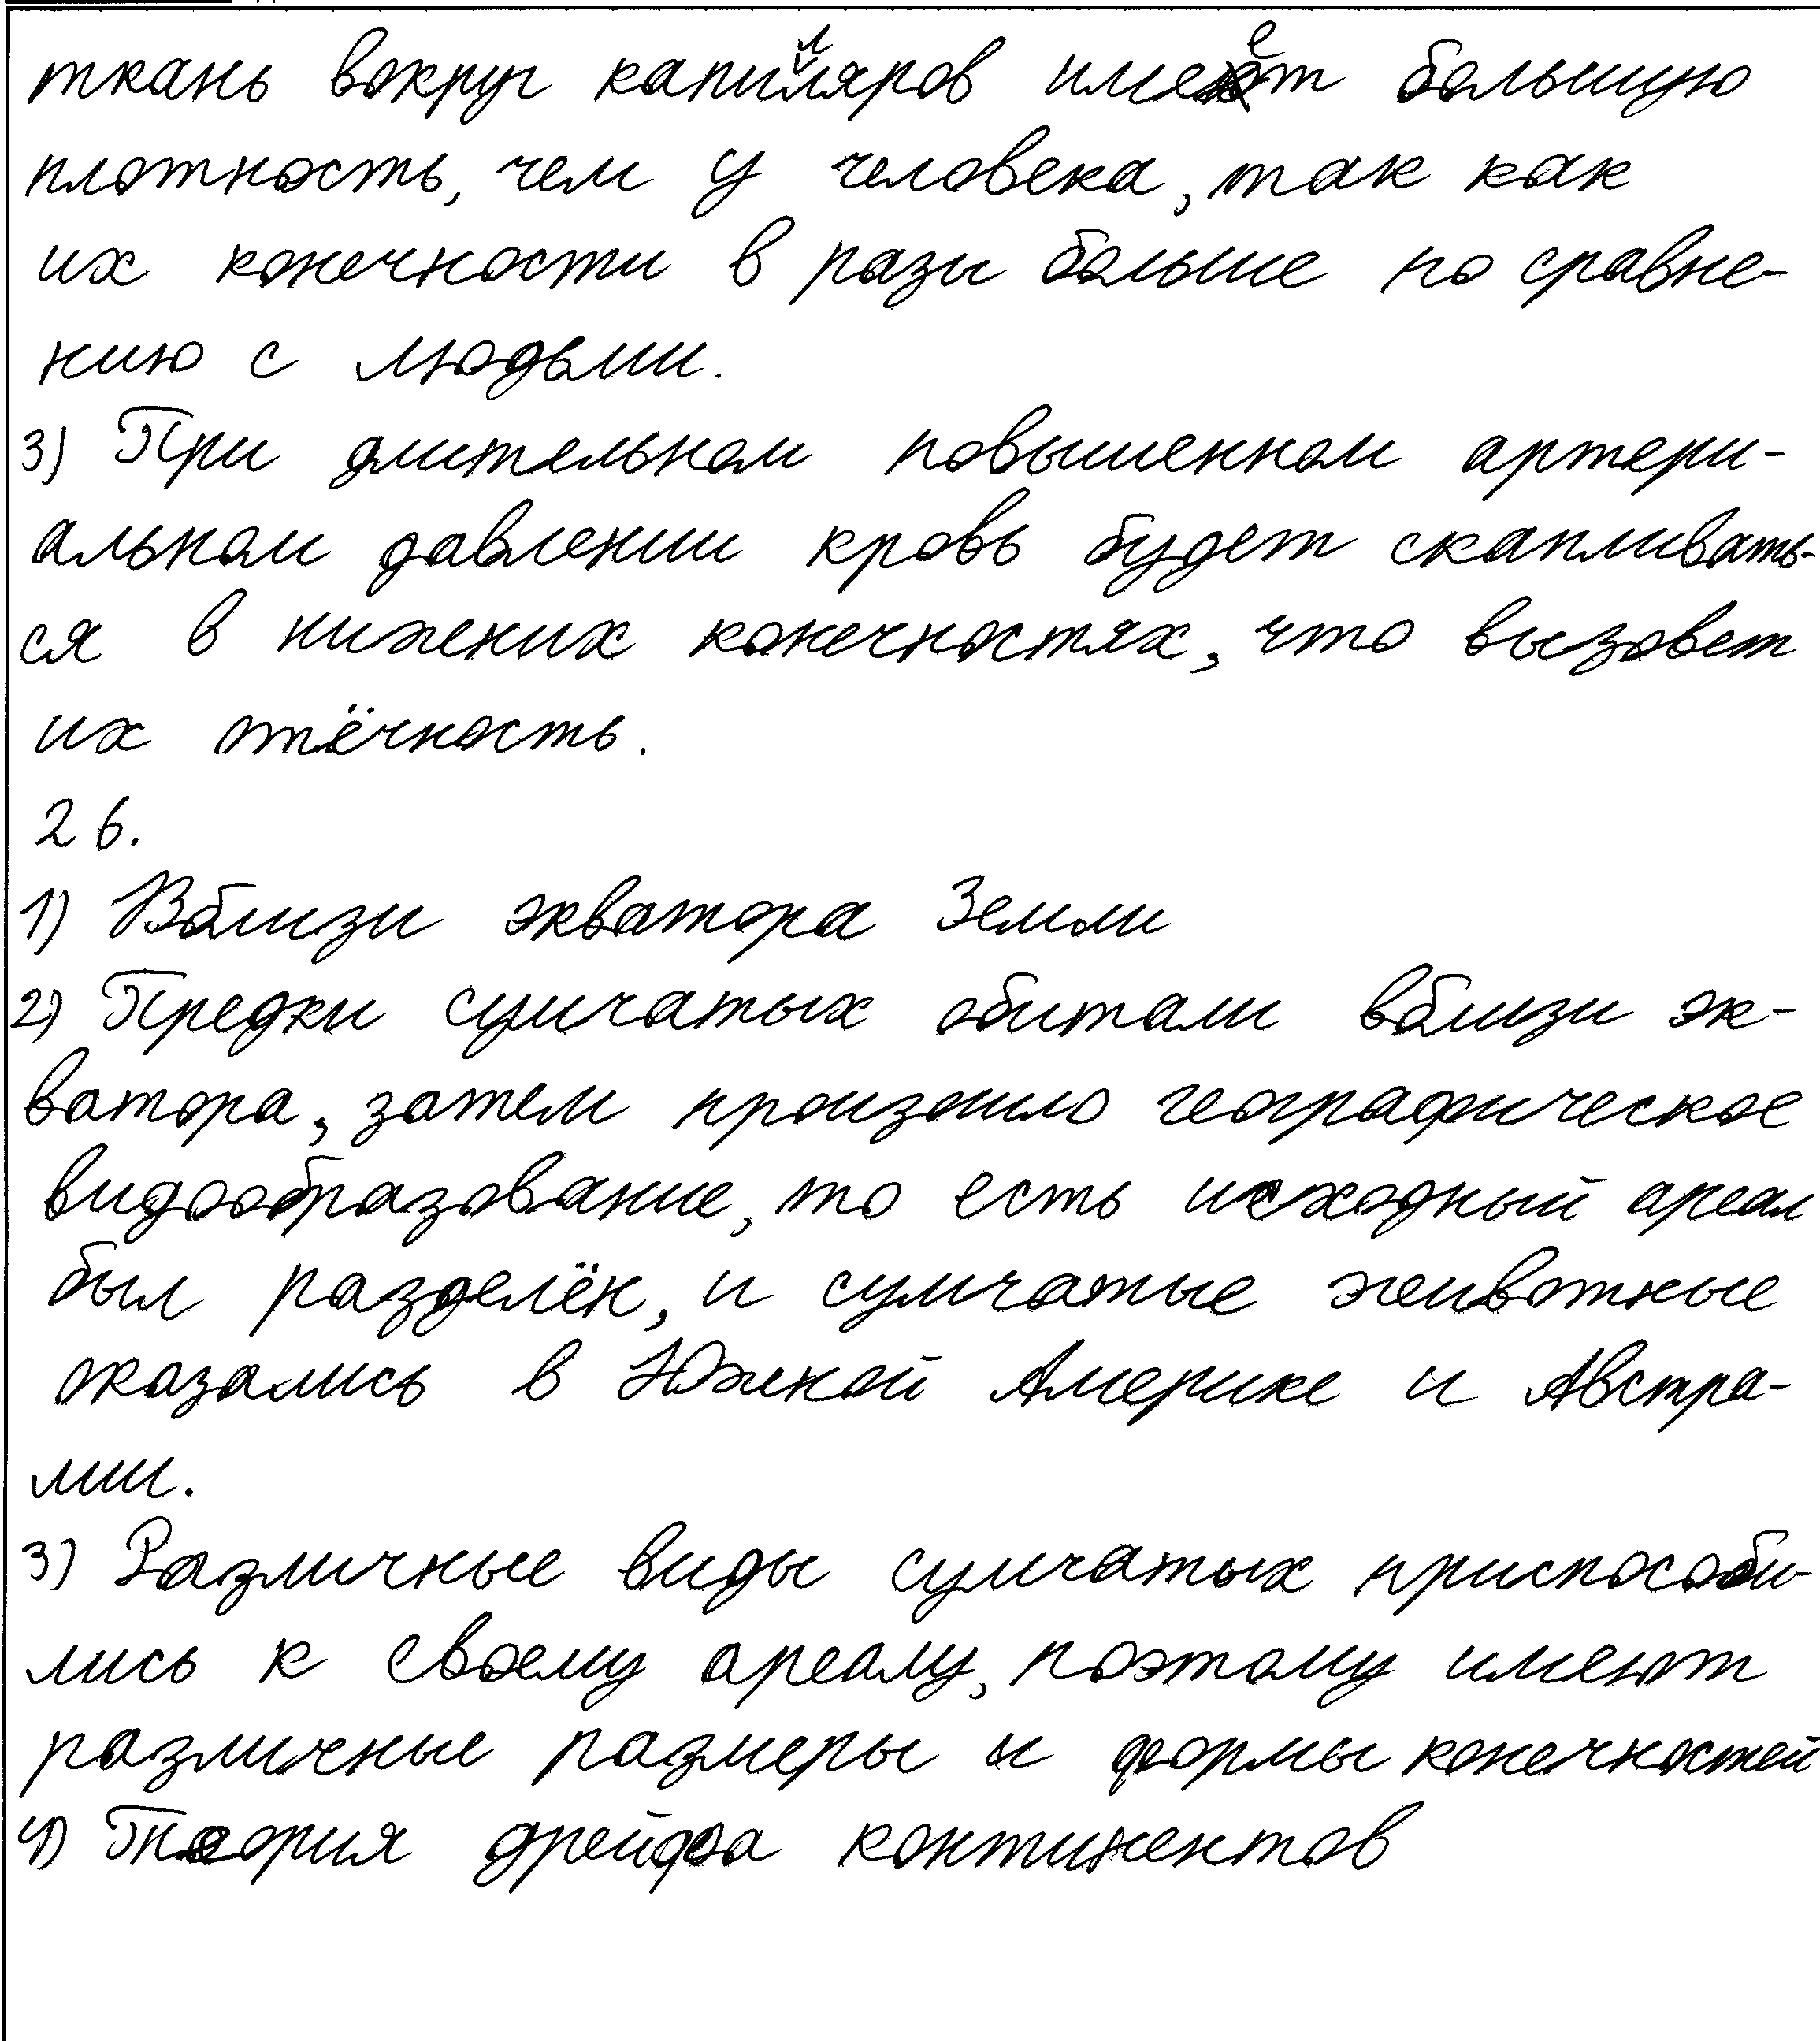 ткань вокруг капилляров имеет большую
плотность, чем у человека, так как
их конечности в разы больше по сравне-
нию с людьми.
3) При длительном повышенном артери-
альном давлении кровь будет скапливать-
ся в нижених конечностях, что вызовет
их отёчность.
26.
1) Вблизи экватора Земли
2) Предки сумчатых обитали вблизи эк-
ватора, затем произошло географическое
видообразование, то есть исходный ареал
был разделён, и сумчатые животные
оказались в Южной Америке и Австра-
лии.
3) Различные виды сумчатых приспособи-
лись к своему ареалу, поэтому имеют
различные размеры и формы конечностей
4) Теория дрейфа континентов